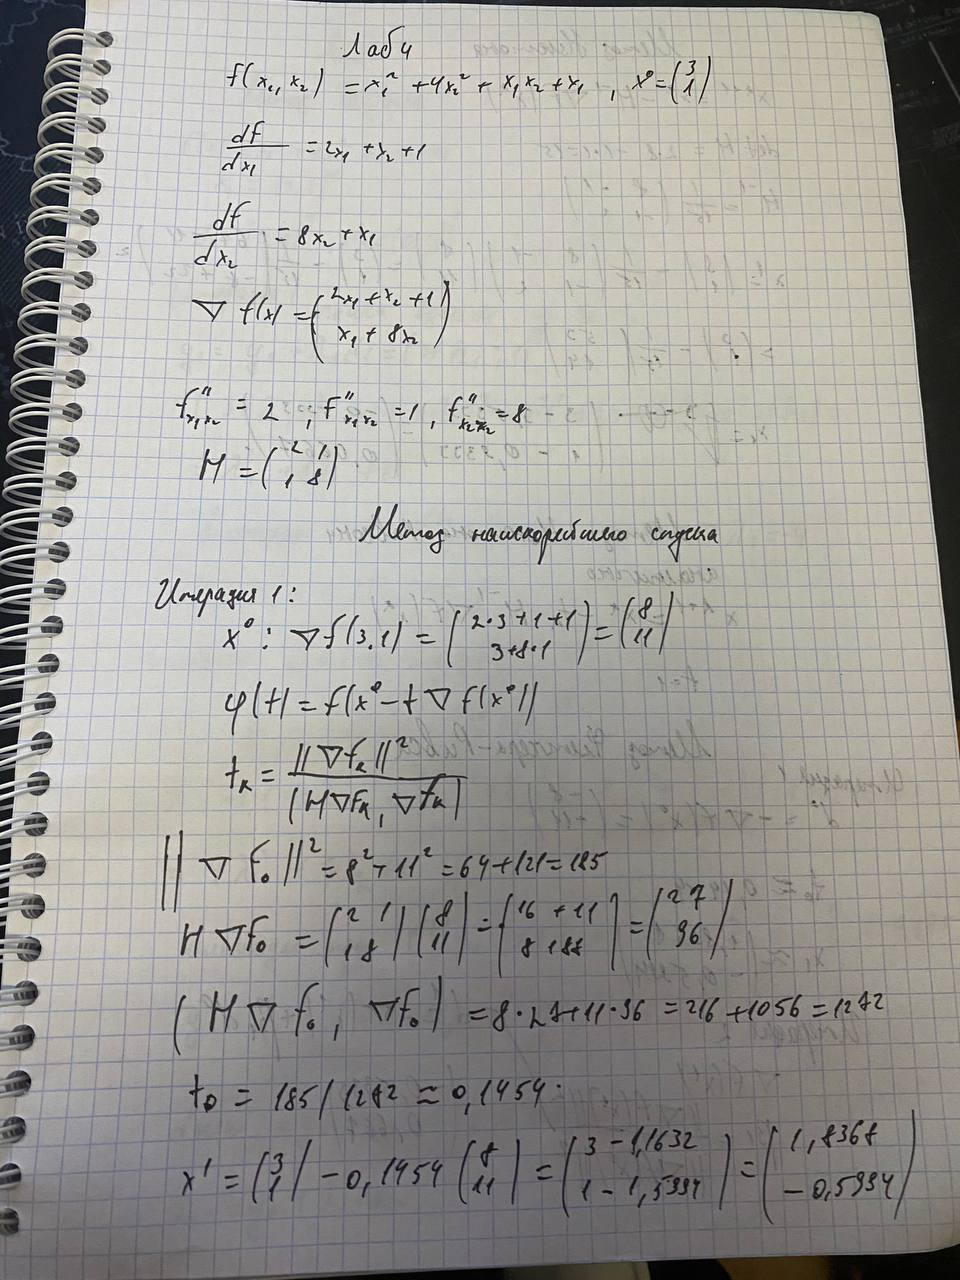 Лаб 4
f(x₁, x₂) = x₁² + 4x₂² + x₁x₂ + x₁ , x⁰ = (3 1)
df/dx₁ = 2x₁ + x₂ + 1
df/dx₂ = 8x₂ + x₁
∇ f(x) = (2x₁ + x₂ + 1
x₁ + 8x₂)
f''x₁x₂ = 2 , f''x₁x₂ = 1 , f''x₂x₂ = 8
H = (2 1
1 8)
Метод наискорейшего спуска
Итерация 1:
x⁰ : ∇f(3.1) = (2·3+1+1
3+8·1) = (8
11)
φ(t) = f(x⁰ - t ∇ f(x⁰))
tₖ = ||∇fₖ||² / (H∇fₖ, ∇fₖ)
||∇ f₀||² = 8² + 11² = 64 + 121 = 185
H ∇f₀ = (2 1
1 8)(8
11) = (16 + 11
8 + 88) = (27
96)
(H ∇ f₀, ∇f₀) = 8·27+11·96 = 216 + 1056 = 1272
t₀ = 185/1272 ≈ 0,1454
x¹ = (3
1) - 0,1454 (8
11) = (3 - 1,1632
1 - 1,5994) = (1,8368
-0,5994)